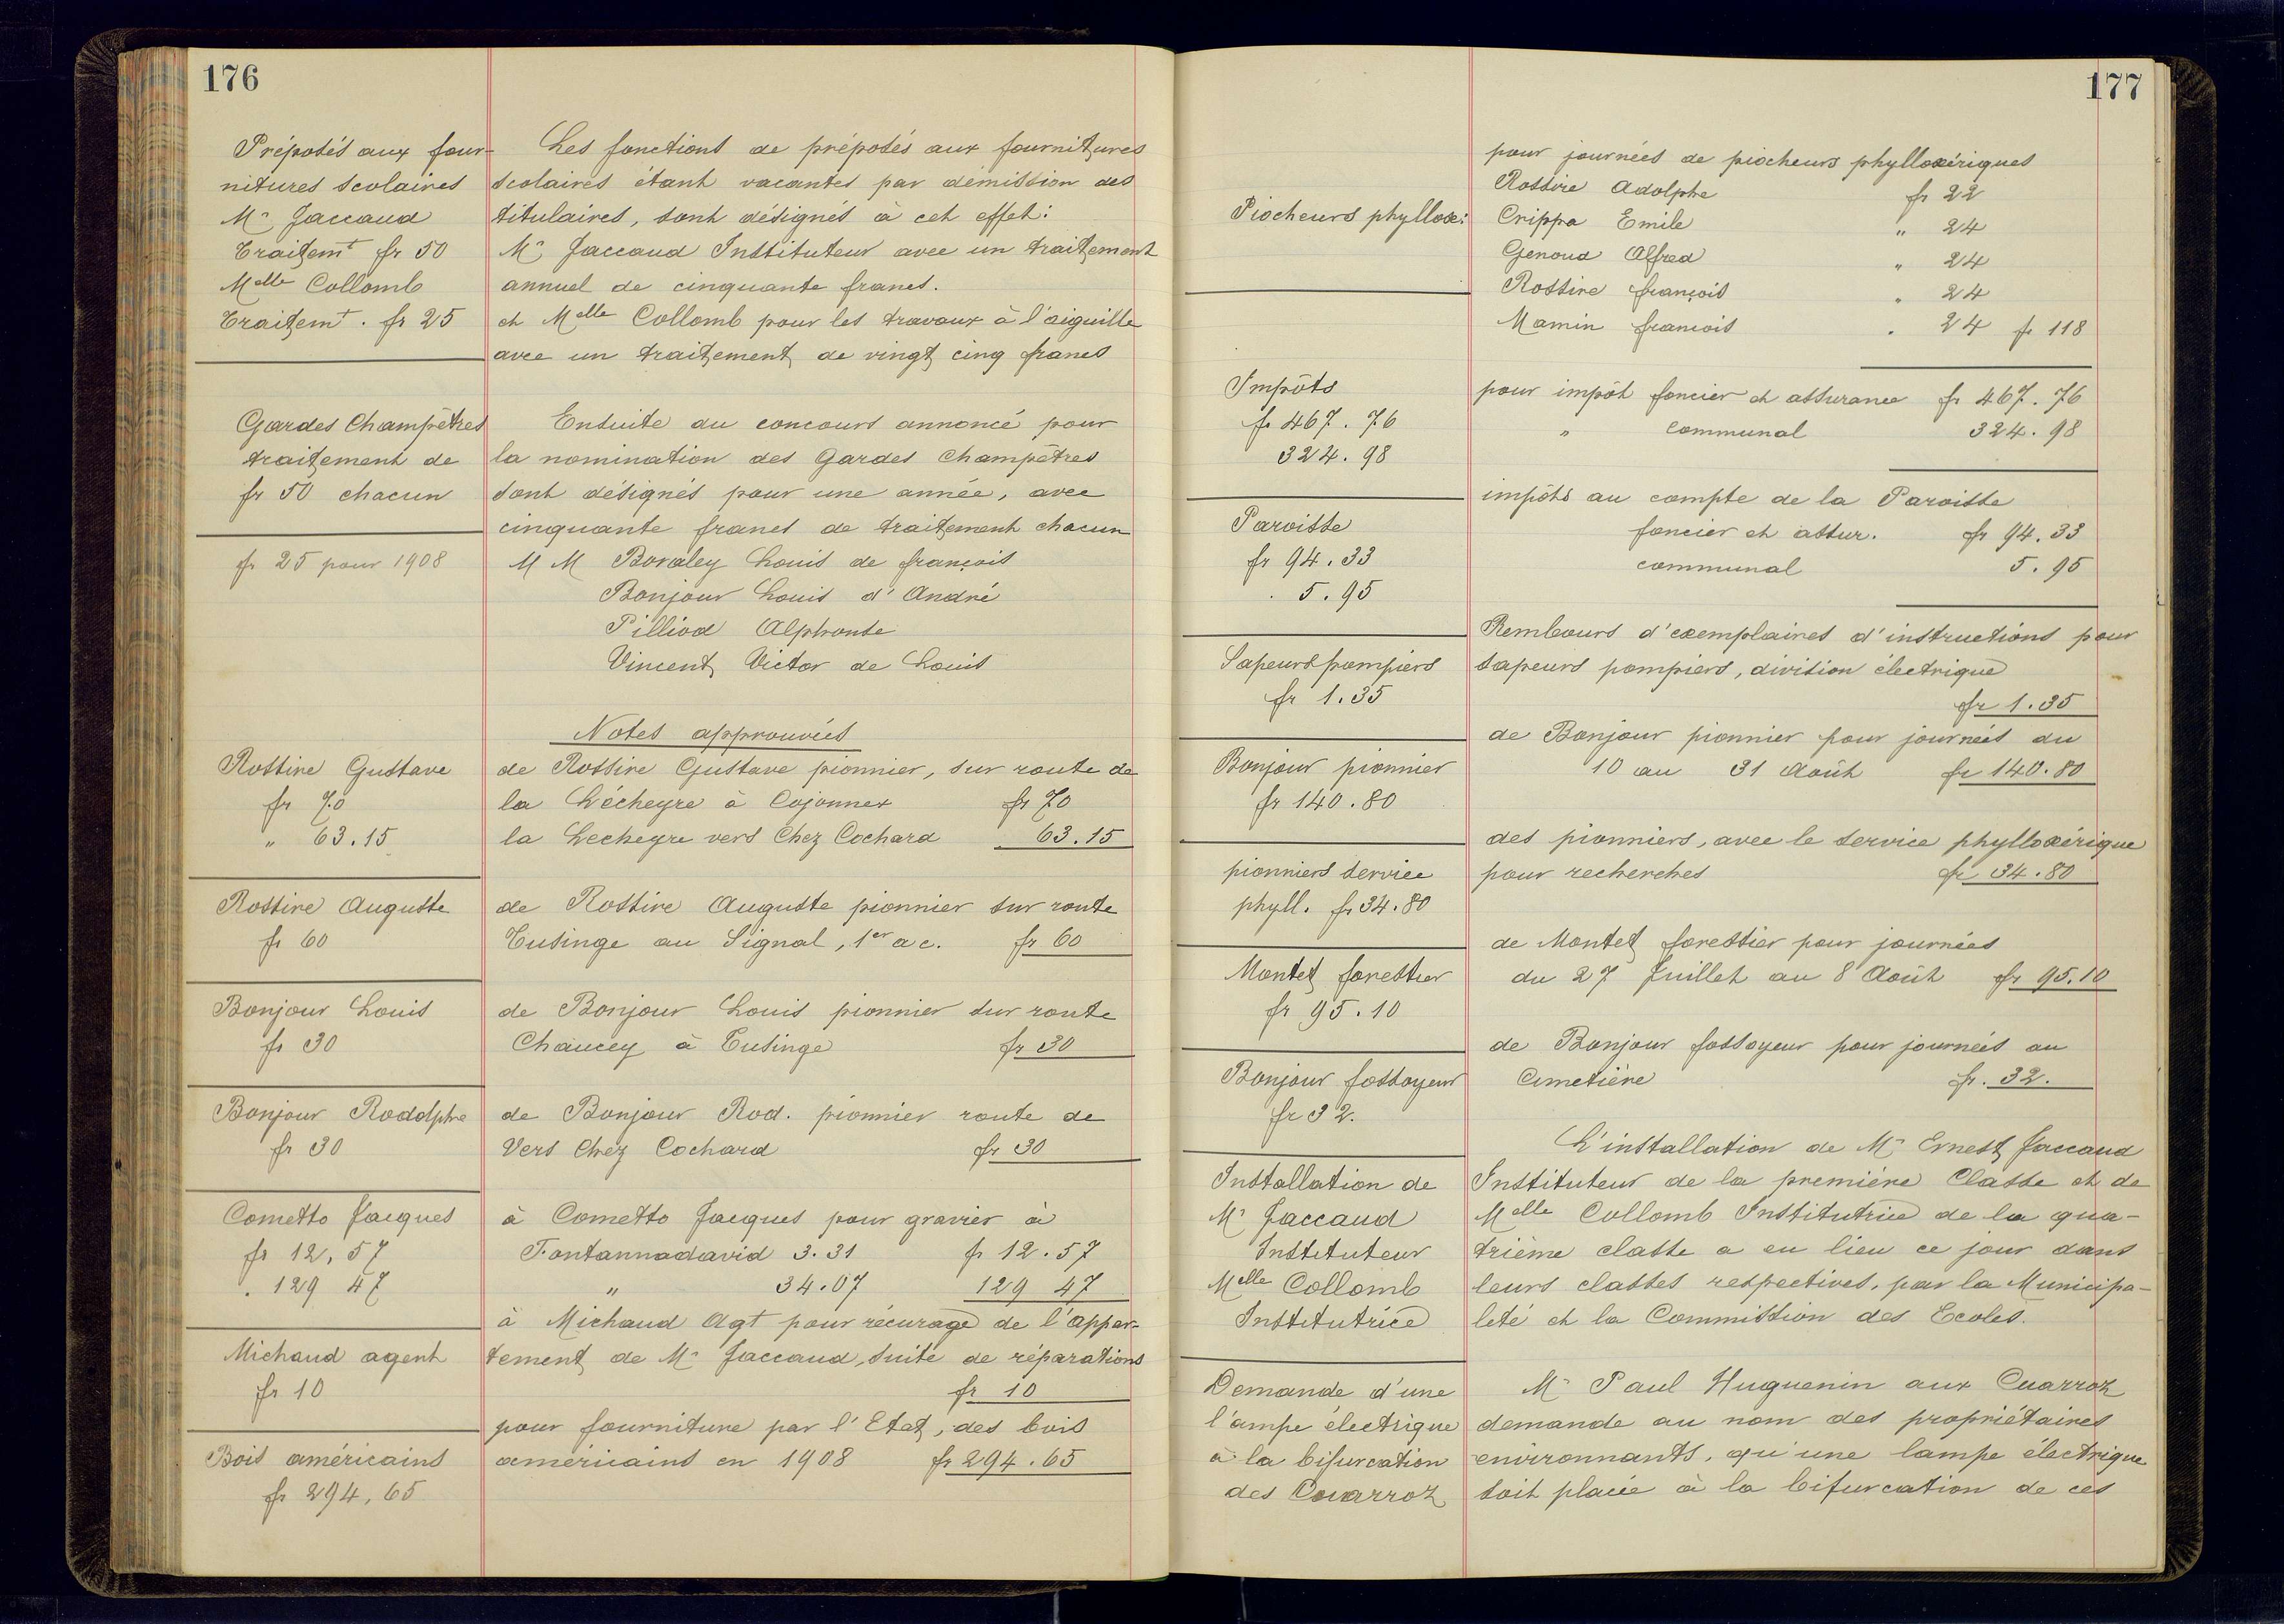 176
Préposés aux four-
nitures scolaires
Mr Jaccaud
Traitemt fr 50
Melle Collomb
Traitemt. fr 25
Les fonctions de préposés aux fournitures
scolaires étant vacantes par démission des
titulaires, sont désignés à cet effet:
Mr Jaccaud Instituteur avec un traitement
annuel de cinquante francs.
et Melle Collomb pour les travaux à l'aiguille
avec un traitement de vingt cinq francs
Gardes Champêtres
traitement de
fr 50 chacun
fr 25 pour 1908
Ensuite du concours annoncé pour
la nomination des Gardes Champêtres
sont désignés pour une année, avec
cinquante francs de traitement chacun
M M Borcley Louis de françois
Bonjour Louis d'André
Pilliod Alphonse
Vincent Victor de Louis
Notes approuvées
Rossire Gustave
fr 70
" 63.15
de Rossire Gustave pionnier, sur route de
la Lécheyre à Cojonnex fr 70
la Lecheyre vers Chez Cochard 63.15
Rossire Auguste
fr 60
de Rossire Auguste pionnier sur route
Tusinge au Signal, 1er ac. fr 60
Bonjour Louis
fr 30
de Bonjour Louis pionnier sur route
Chaucey à Tusinge fr 30
Bonjour Rodolphe
fr 30
de Bonjour Rod. pionnier route de
Vers Chez Cochard fr 30
Cometto Jacques
fr 12,57
. 129 47
à Cometto Jacques pour gravier à
Fontannadavid 3.31 fr 12.57
" 34.07 129 47
Michaud agent
fr 10
à Michaud Agt pour récurage de l'appar-
tement de Mr Jaccaud, suite de réparations
fr 10
Bois américains
fr 294,65
pour fourniture par l'Etat, des bois
américains en 1908 fr 294.65
177
Piocheurs phyllox:
pour journées de piocheurs phylloxériques
Rossire Adolphe fr 22
Crippa Emile " 24
Genoud Alfred " 24
Rossire françois " 24
Mamin francois . 24 fr 118
Impôts
fr 467.76
324.98
pour impôt foncier et assurance fr 467.76
" communal 324.98
Paroisse
fr 94.33
. 5.95
impôts au compte de la Paroisse
foncier et assur. fr 94.33
communal 5.95
Sapeurs pompiers
fr 1.35
Rembours d'exemplaires d'instructions pour
sapeurs pompiers, division électrique
fr 1.35
Bonjour pionnier
fr 140.80
de Bonjour pionnier pour journées du
10 au 31 Août fr 140.80
pionniers service
phyll. fr 34.80
des pionniers, avec le service phylloxérique
pour recherches fr 34.80
Montet forestier
fr 95.10
de Montet forestier pour journées
du 27 Juillet au 8 Août fr 95.10
Bonjour fossoyeur
fr 32.
de Bonjour fossoyeur pour journées au
Cimetière fr. 32.
Installation de
Mr Jaccaud
Instituteur
Melle Collomb
Institutrice
L'installation de Mr Ernest Jaccaud
Instituteur de la première Classe et de
Melle Collomb Institutrice de la qua-
trième classe a eu lieu ce jour dans
leurs classes respectives, par la Municipa-
leté et la Commission des Ecoles.
Demande d'une
l'ampe électrique
à la bifurcation
des Cuarroz
Mr Paul Huguenin aux Cuarroz
demande au nom des propriétaires
environnants, qu'une lampe électrique
soit placée à la bifurcation de ces